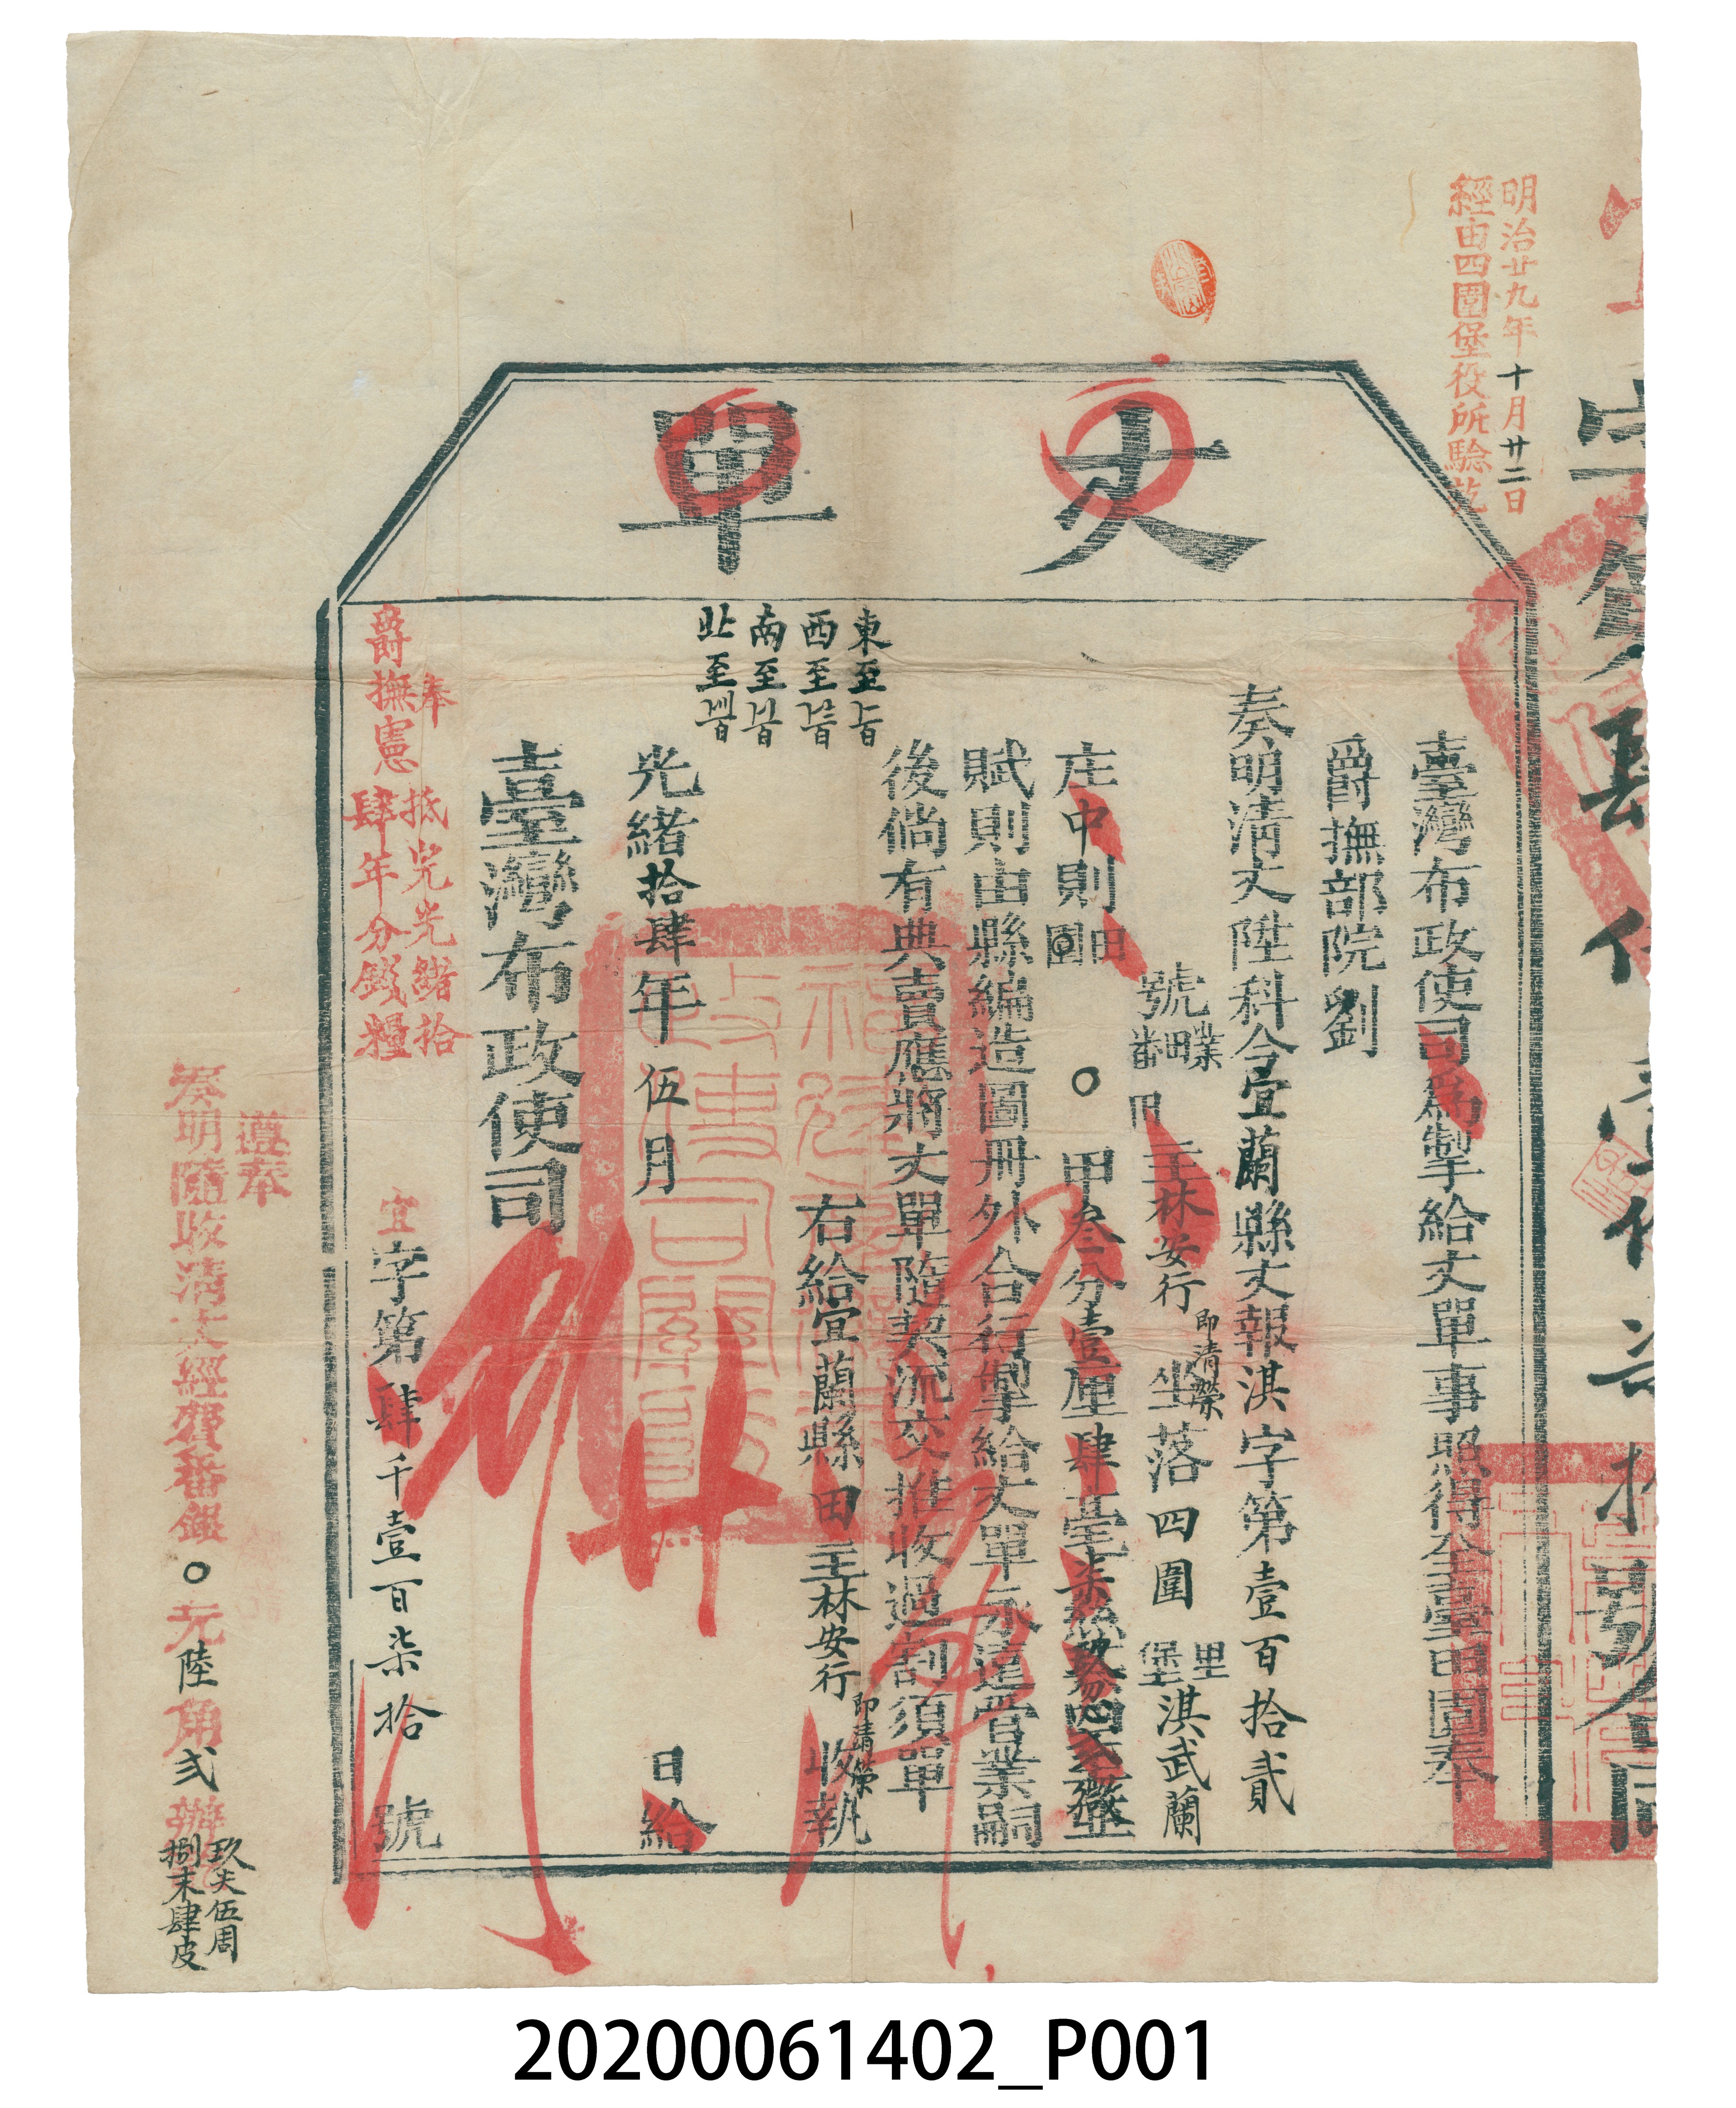 丈單
明治廿九年十月廿二日
經由四圍堡役所驗訖
臺灣布政使司為掣給丈單事照得全臺田園奉
爵撫部院劉
奏明清丈陞科今宜蘭縣丈報淇字第壹百拾貳
號業田番田主林安行即清榮坐落四圍里堡淇武蘭
庄中則田園〇甲叁分壹厘肆毫柒絲
賦則由縣編造圖冊外合行掣給丈單永遠管業嗣
後倘有典賣應將丈單隨契流交推收過割須單
右給宜蘭縣田主林安行即清榮收執
東至
西至
南至
北至
光緒拾肆年伍月日給
臺灣布政使司
奉
爵撫憲
抵完光緒拾
肆年分錢糧
宜字第肆千壹百柒拾號
遵奉
奏明隨收清丈經費番銀〇元陸角貳瓣
玖尖伍周
捌末肆皮
20200061402_P001